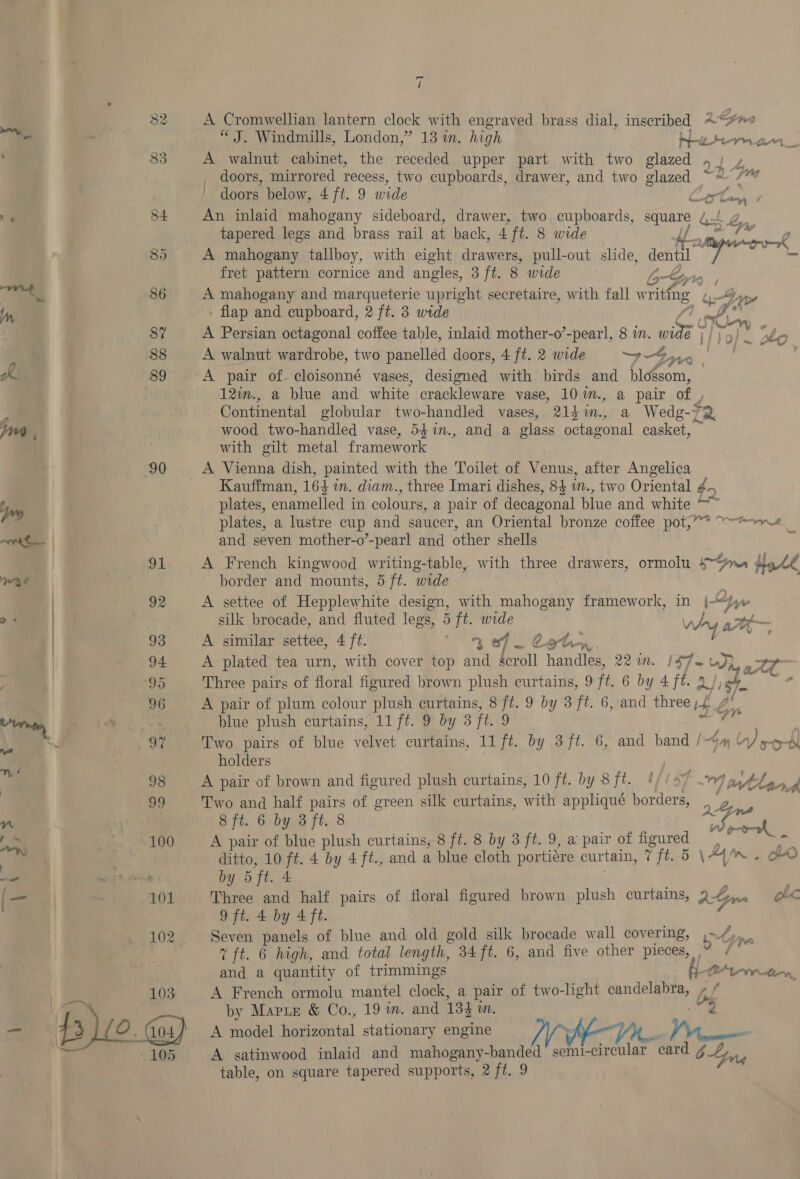 7
82 A Cromwellian lantern clock with engraved brass dial, inscribed 2 Gns
“J. Windmills, London,” 13 in. high
83 A walnut cabinet, the receded upper part with two glazed
doors, mirrored recess, two cupboards, drawer, and two glazed
doors below, 4 ft. 9 wide
84 An inlaid mahogany sideboard, drawer, two cupboards, square
tapered legs and brass rail at back, 4 ft. 8 wide
85 A mahogany tallboy, with eight drawers, pull-out slide, dentil
fret pattern cornice and angles, 3 ft. 8 wide
86 A mahogany and marqueterie upright secretaire, with fall writing
flap and cupboard, 2 ft. 3 wide
87 A Persian octagonal coffee table, inlaid mother-o’-pearl, 8 in. wide
88 A walnut wardrobe, two panelled doors, 4 ft. 2 wide
89 A pair of cloisonné vases, designed with birds and blossom,
12in., a blue and white crackleware vase, 10 in., a pair of
Continental globular two-handled vases, 21½ in., a Wedg-
wood two-handled vase, 5½ in., and a glass octagonal casket,
with gilt metal framework
90 A Vienna dish, painted with the Toilet of Venus, after Angelica
Kauffman, 16½ in. diam., three Imari dishes, 8½ in., two Oriental
plates, enamelled in colours, a pair of decagonal blue and white
plates, a lustre cup and saucer, an Oriental bronze coffee pot,
and seven mother-o’-pearl and other shells
91 A French kingwood writing-table, with three drawers, ormolu
border and mounts, 5 ft. wide
92 A settee of Hepplewhite design, with mahogany framework, in
silk brocade, and fluted legs, 5 ft. wide
93 A similar settee, 4 ft.
94 A plated tea urn, with cover top and scroll handles, 22 in.
95 Three pairs of floral figured brown plush curtains, 9 ft. 6 by 4 ft.
96 A pair of plum colour plush curtains, 8 ft. 9 by 3 ft. 6, and three
blue plush curtains, 11 ft. 9 by 3 ft. 9
97 Two pairs of blue velvet curtains, 11 ft. by 3 ft. 6, and band
holders
98 A pair of brown and figured plush curtains, 10 ft. by 8 ft.
99 Two and half pairs of green silk curtains, with appliqué borders,
8 ft. 6 by 3 ft. 8
100 A pair of blue plush curtains, 8 ft. 8 by 3 ft. 9, a pair of figured
ditto, 10 ft. 4 by 4 ft., and a blue cloth portière curtain, 7 ft. 5
by 5 ft. 4
101 Three and half pairs of floral figured brown plush curtains,
9 ft. 4 by 4 ft.
102 Seven panels of blue and old gold silk brocade wall covering,
7 ft. 6 high, and total length, 34 ft. 6, and five other pieces,
and a quantity of trimmings
103 A French ormolu mantel clock, a pair of two-light candelabra,
by MAPLE & Co., 19 in. and 13½ in.
104 A model horizontal stationary engine
105 A satinwood inlaid and mahogany-banded semi-circular card
table, on square tapered supports, 2 ft. 9